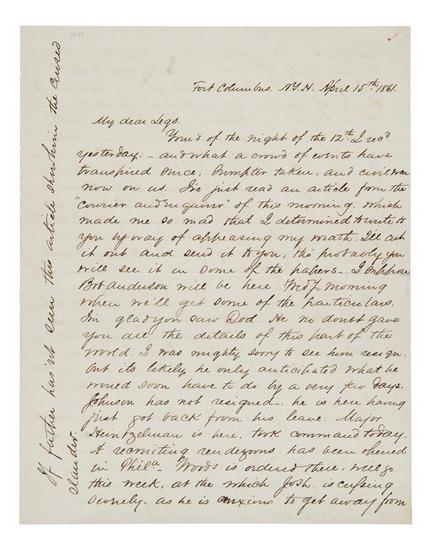 Fort Columbus. N.Y.H. April 15th 1861.
My dear Legs.
Your's of the night of the 12th I rec'd
yesterday. - and what a crowd of events have
transpired since, Sumpter taken, and civil war
now on us. I've just read an article from the
"courier and enquirer" of this morning. which
made me so mad that I determined to write to
you by way of appeasing my wrath. I'll cut
it out and send it to you, tho' probably you
will see it in some of the papers - I suppose
Bob Anderson will be here Wedy. morning
when we'll get some of the particulars.
I'm glad you saw Dod. He no doubt gave
you all the details of this part of the
world. I was mighty sorry to see him resign.
but its likely he only anticipated what he
would soon have to do by a very few days.
Johnson has not resigned - he is here having
just got back from his leave. Major
Heintzelman is here, took command today.
A recruiting rendezvous has been opened
in Phila. Woods is ordered there, will go
this week, at the which Josh. is cussing
severely, as he is anxious to get away from
If father has not seen this article show him the cursed
slander